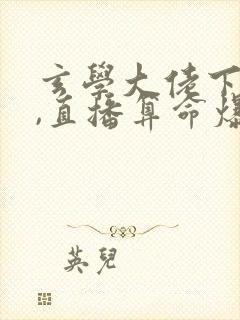 玄學大佬下
,直播算命爆
英兒